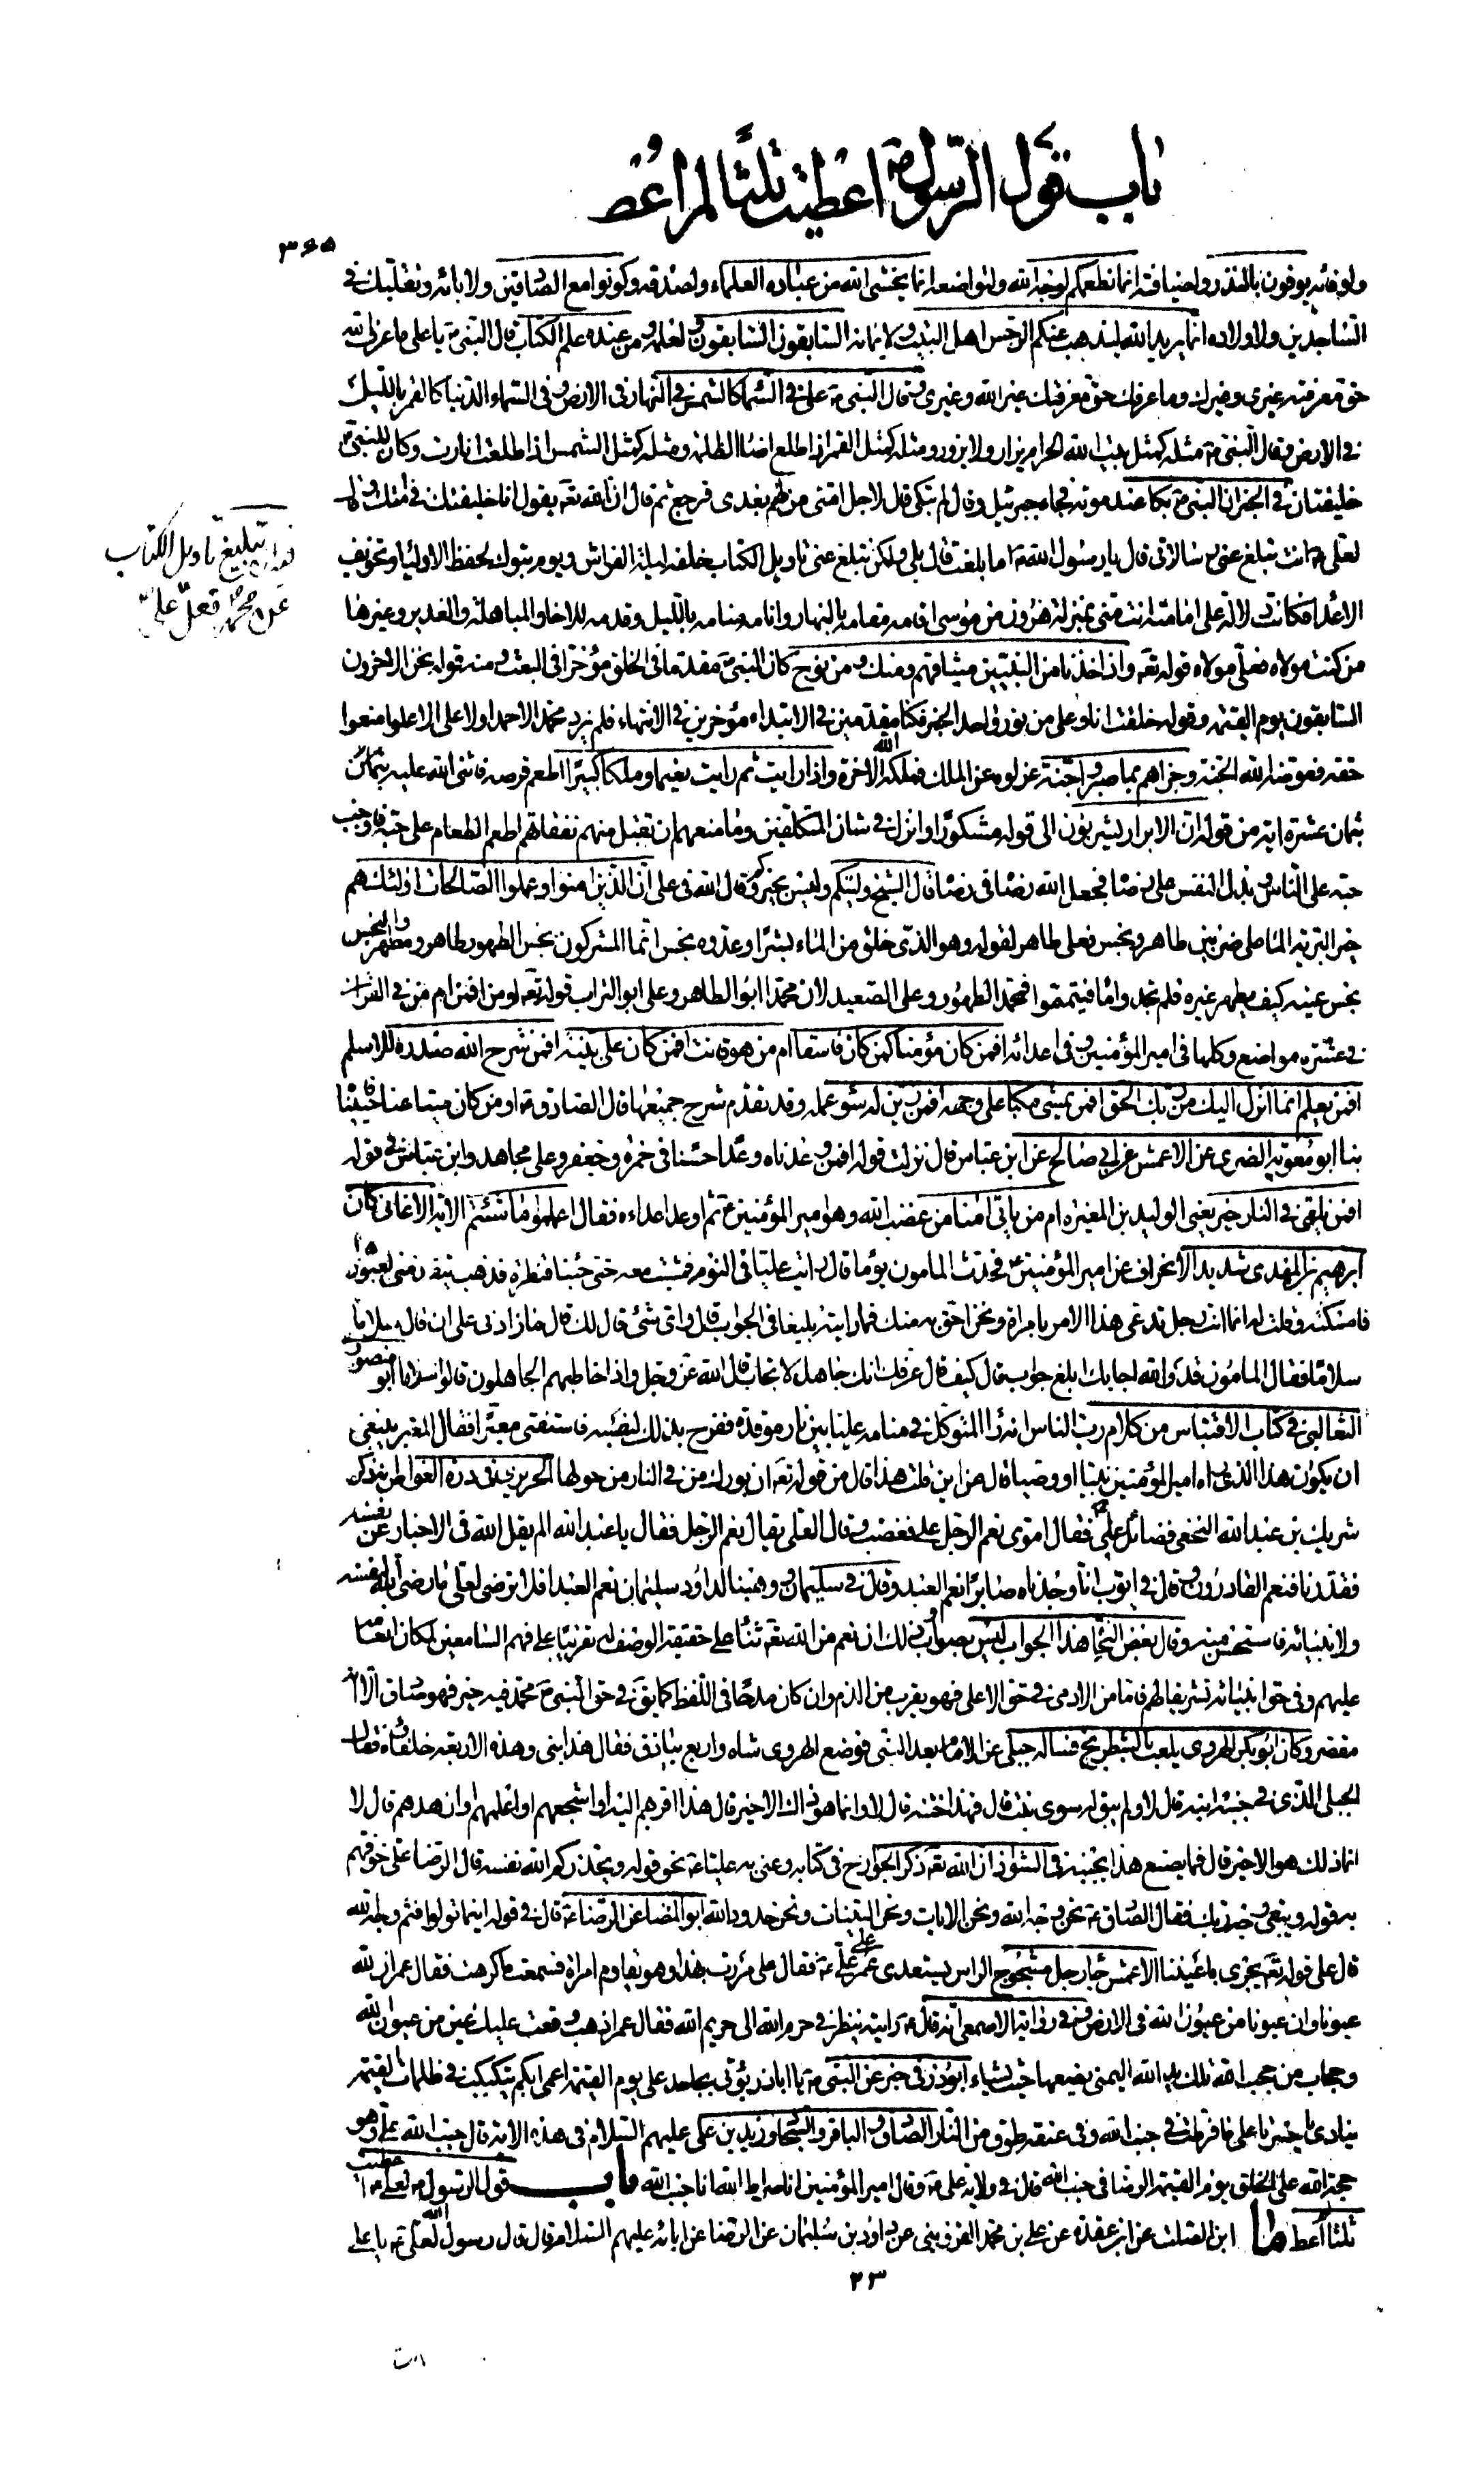 باب قول الرسول ص اعطيت ثلثا لم اعط
٣٦٥
ولوفائه يوفون بالنذر ولضيافته انما نطعمكم لوجه الله ولتواضعه انما يخشى الله من عباده العلماء ولصدقه وكونوا مع الصادقين ولابائه وتقلبك في
الساجدين ولاولاده انما يريد الله ليذهب عنكم الرجس اهل البيت ولايمانه السابقون السابقون ولعلمه ومن عنده علم الكتاب قال النبي ص يا علي ما عرف الله
حق معرفته غيري وغيرك وما عرفك حق معرفتك غير الله وغيري وقال النبي ص علي في السماء كالشمس في النهار في الارض وفي السماء الدنيا كالقمر بالليل
في الارض وقال النبي ص مثله كمثل بيت الله الحرام يزار ولا يزور ومثله كمثل القمر اذا طلع اضاء الظلمة ومثله كمثل الشمس اذا طلعت انارت وكان للنبي ص
خليفتان في الخبر ان النبي ص بكا عند موته فجاء جبرئيل وقال لم تبكي قال لاجل امتي من لهم بعدي فرجع ثم قال ان الله تعه يقول انا خليفتك في امتك وقال
لعلي ع انت تبلغ عني رسالاتي قال يا رسول الله ص اما بلغت قال بلى ولكن تبلغ عني تاويل الكتاب خلفه ليلة الفراش ويوم تبوك لحفظ الاولياء وتخويف
الاعداء فكانت دلالة على امامته انت مني بمنزلة هرون من موسى اقامه مقامه بالنهار وانامه منامه بالليل وقدمه للاخاء والمباهلة والغدير وغيرها
من كنت مولاه فعلي مولاه قوله تعه واذ اخذنا من النبيين ميثاقهم ومنك ومن نوح كان النبي ص مقدما في الخلق مؤخرا في البعث ومنه قوله نحن الاخرون
السابقون يوم القيمة وقوله خلقت انا وعلي من نور واحد الخبر فكنا مقدمين في الابتداء مؤخرين في الانتهاء فلم يزد محمد الا حمدا ولا علي الا علوا منعوا
حقه فعوضه الله الجنة وجزاهم بما صبروا جنة عزلوه عن الملك فملكه الله الاخرة واذا رايت ثم رايت نعيما وملكا كبيرا اطعم قرصه فاثنى الله عليه
بثمان عشرة اية من قوله ان الابرار يشربون الى قوله مشكورا وانزل في شان المتكلفين وما منعهم ان تقبل منهم نفقاتهم اطعم الطعام على حبه فاوجب
حبه على الناس بذل النفس على رضاه فجعل الله رضاه في رضاه قال الشيخ وليتكم ولست بخيركم وقال الله في علي ان الذين امنوا وعملوا الصالحات اولئك هم
خير البرية الماء على ضربين طاهر ونجس فعلي طاهر لقوله وهو الذي خلق من الماء بشرا وعدوه نجس انما المشركون نجس الطهور طاهر ومطهر والنجس
نجس عينه كيف يطهر غيره فلم تجدوا ماء فتيمموا فمحمد الطهور وعلي الصعيد لان محمدا ابو الطاهر وعلي ابو التراب قوله تعه او من افمن ام من في القران
في عشرة مواضع وكلها في امير المؤمنين وفي اعدائه افمن كان مؤمنا كمن كان فاسقا ام من هو قانت افمن كان على بينة افمن شرح الله صدره للاسلام
افمن يعلم انما انزل اليك من ربك الحق افمن يمشي مكبا على وجهه افمن زين له سوء عمله وقد تقدم شرح جميعها قال الصادق ع او من كان ميتا عنا فاحييناه
بنا ابو معوية الضرير عن الاعمش عن ابي صالح عن ابن عباس قال نزلت قوله افمن وعدناه وعدا حسنا في حمزة وجعفر وعلي مجاهد وابن عباس في قوله
افمن يلقى في النار خير يعني الوليد بن المغيرة ام من ياتي امنا من غضب الله وهو امير المؤمنين ع ثم اوعد اعداءه فقال اعملوا ما شئتم الاية الاغاني كان
ابرهيم بن المهدي شديد الانحراف عن امير المؤمنين ع فحدث المامون يوما قال رايت عليا في النوم فمشيت معه حتى جئنا قنطرة فذهب يتقدمني لعبورها
فامسكته وقلت له انما انت رجل تدعي هذا الامر بامراة ونحن احق به منك فما رايته بليغا في الجواب قال واي شيء قال لك قال ما زادني على ان قال سلاما
سلاما فقال المامون قد والله اجابك ابلغ جواب قال كيف قال عرفك انك جاهل لا تجاب قال الله عز وجل واذا خاطبهم الجاهلون قالوا سلاما ابو منصور
الثعالبي في كتاب الاقتباس من كلام رب الناس انه راى المتوكل في منامه عليا بين نار موقدة ففرح بذلك لنصبه فاستفتى معبرا فقال المعبر ينبغي
ان يكون هذا الذي راه امير المؤمنين نبيا او وصيا قال من اين قلت هذا قال من قوله تعه ان بورك من في النار من حولها الحريري في درة الغواص ذكر
شريك بن عبد الله النخعي فضائل علي ع فقال اموي نعم الرجل علي فغضب وقال العلي يقال نعم الرجل فقال يا عبد الله الم يقل الله في الاخبار عن نفسه
فقدرنا فنعم القادرون وقال في ايوب انا وجدناه صابرا نعم العبد وقال في سليمان ووهبنا لداود سليمان نعم العبد افلا ترضى لعلي ما رضي الله لنفسه
ولانبيائه فاستحسن منه وقال بعض النحاة هذا الجواب ليس بصواب وذلك ان نعم من الله تعه ثناء على حقيقة الوصف له تقريبا على فهم السامعين لمكان انعامه
عليهم وفي حق انبيائه تشريفا لهم فاما من الادمي في حق الاعلى فهو يقرب من الذم وان كان مدحا في اللفظ كما يق في حق النبي ص محمد فيه خير فهو صادق الا انه
مقصر وكان ابو بكر الهروي يلعب بالشطرنج فساله جبلي عن الامام بعد النبي فوضع الهروي شاه واربع بياذق فقال هذا نبي وهذه الاربعة خلفاؤه فقال
الجبلي الذي في جنبه ابنه قال لا ولم يبق له سوى بنت قال فهذا ختنه قال لا وانما هو ذاك الاخير قال هذا اقربهم اليه او اشجعهم او اعلمهم او ازهدهم قال لا
انما ذلك هو الاخير قال فما يصنع هذا بجنبه في الشواذ ان الله تعه ذكر الجوارح في كتابه وعنى به عليا ع نحو قوله ويحذركم الله نفسه قال الرضا علي خوفهم
به قوله ويبقى وجه ربك فقال الصادق ع نحن وجه الله ونحن الايات ونحن البينات ونحن حدود الله ابو المضا عن الرضا ع قال في قوله اينما تولوا فثم وجه الله
قال علي قوله تعه تجري باعيننا الاعمش جاء رجل مشجوج الراس يستعدي عمر على علي ع فقال علي مررت بهذا وهو يقاوم امراة فسمعت ما كرهت فقال عمر ان لله
عيونا وان عليا من عيون الله في الارض وفي رواية الاصمعي انه قال ع رايته ينظر في حرم الله الى حريم الله فقال عمر اذهب وقعت عليك عين من عيون الله
وحجاب من حجب الله تلك يد الله اليمنى يضعها حيث يشاء ابو ذر في خبر عن النبي ص يا ابا ذر يؤتى بجاحد علي يوم القيمة اعمى ابكم يتكبكب في ظلمات القيمة
ينادي يا حسرتا على ما فرطت في جنب الله وفي عنقه طوق من النار الصادق والباقر والسجاد وزيد بن علي عليهم السلام في هذه الاية قال جنب الله علي وهو
حجة الله على الخلق يوم القيمة الرضا في جنب الله قال في ولاية علي ع وقال امير المؤمنين انا صراط الله انا جنب الله باب قول الرسول ص لعلي ع اعطيت
ثلثا لم اعطها ابن الصلت عن ابن عقدة عن علي بن محمد القزويني عن داود بن سليمان عن الرضا عن ابائه عليهم السلام قال قال رسول الله لعلي ع يا علي
٢٣
تبليغ تاويل الكتاب
عن محمد ص فعل علي ع